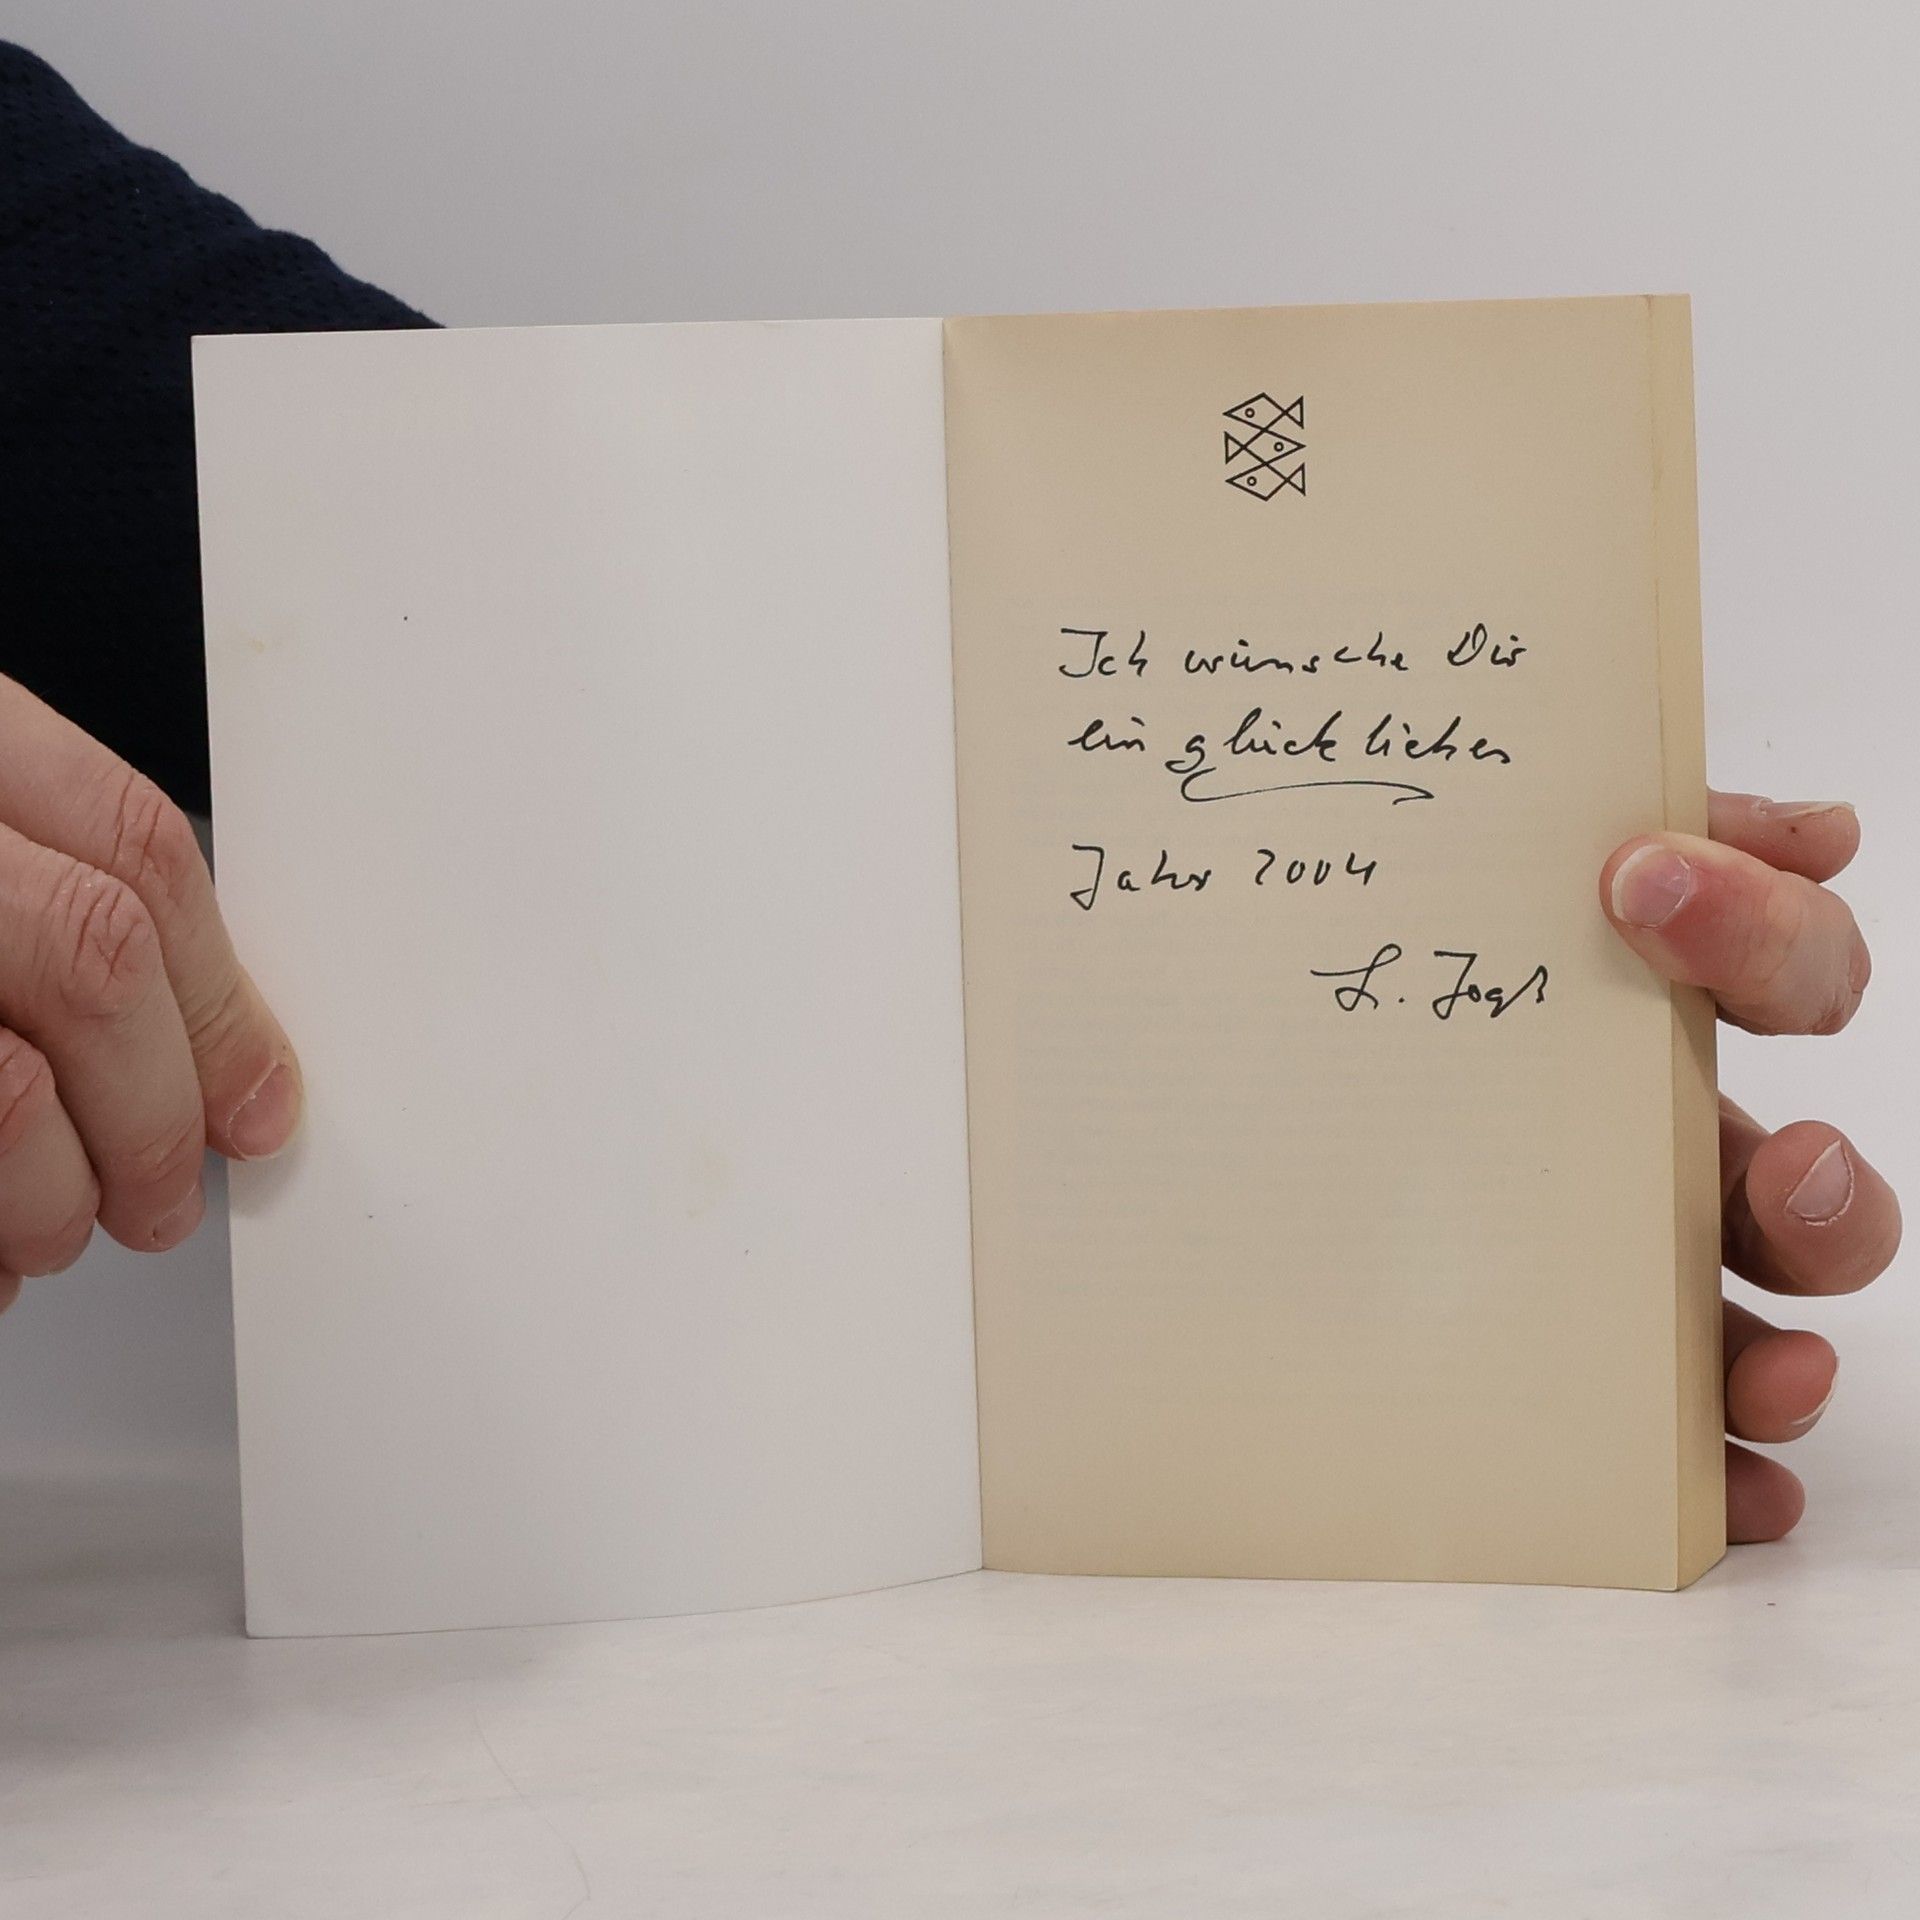 Ich wünsche Dir
ein glückliches
Jahr 2004
L.